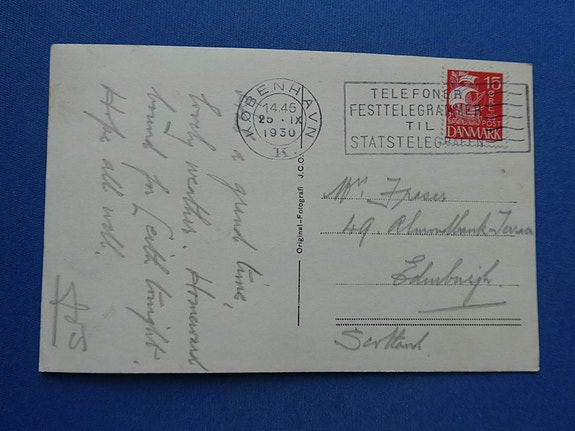 KØBENHAVN
14.45
25.IX
1930
K.
TELEFONER
FESTTELEGRAMMER
TIL
STATSTELEGRAFEN
15
POST
DANMARK
a grand time,
lovely weather. Homeward
bound for Leith tonight.
Hope all well.
Original-Fotografi J.C.O.
Mrs Fraser
49. Almondbank Terrace
Edinburgh.
Scotland.